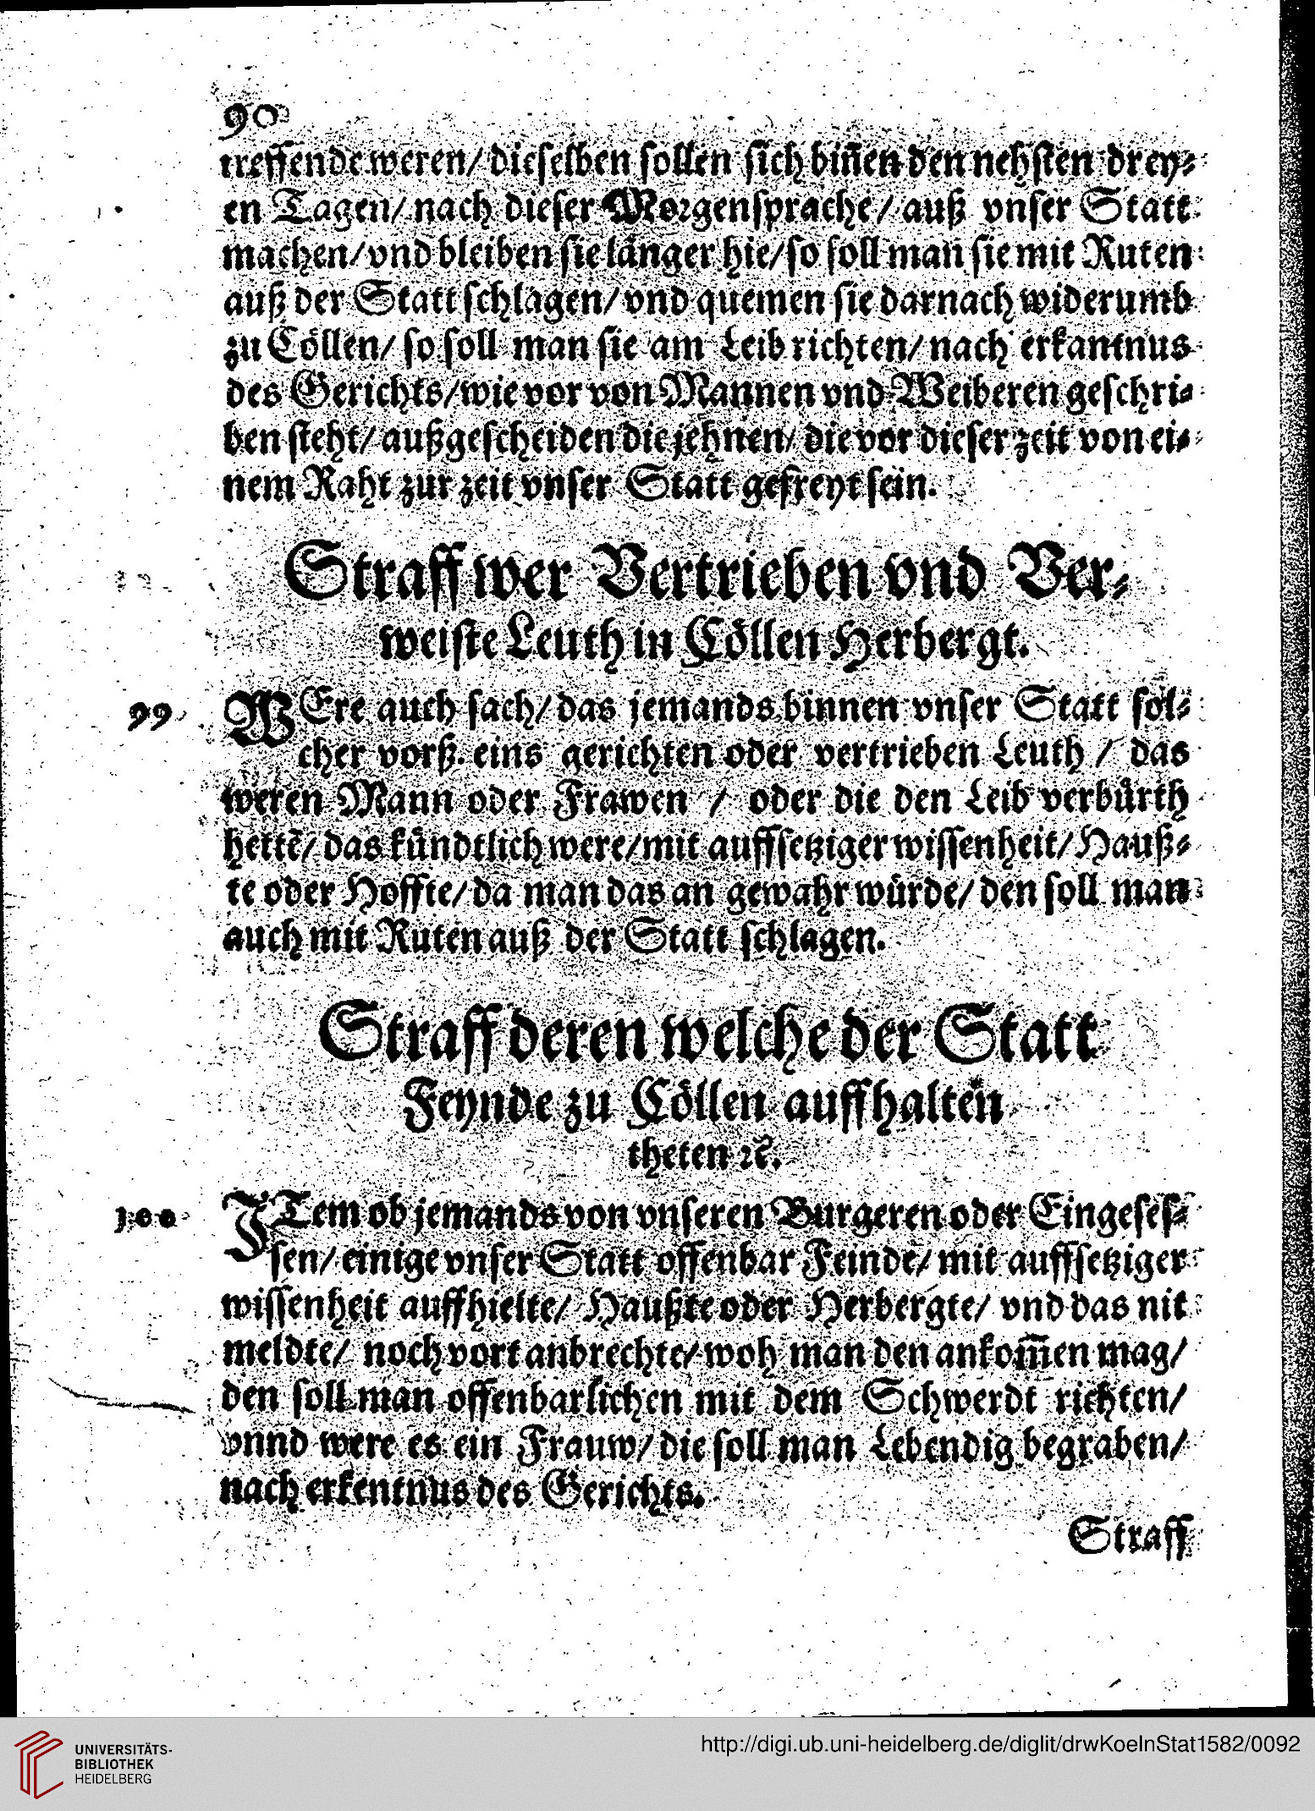 90
treffende weren/ dieselben sollen sich biñen den nehsten drey⸗
en Tagen/ nach dieser Morgensprache/ auß vnser Statt
machen/ vnd bleiben sie länger hie/ so soll man sie mit Ruten
auß der Statt schlagen/ vnd quemen sie darnach widerumb
zu Cöllen/ so soll man sie am Leib richten/ nach erkantnus
des Gerichts/ wie vor von Mannen vnd Weiberen geschri⸗
ben steht/ außgescheiden die jehnen/ die vor dieser zeit von ei⸗
nem Raht zur zeit vnser Statt gefreyt sein.
Straff wer Vertrieben vnd Ver⸗
weiste Leuth in Cöllen Herbergt.
99 WEre auch sach/ das jemands binnen vnser Statt sol⸗
cher vorß. eins gerichten oder vertrieben Leuth / das
weren Mann oder Frawen / oder die den Leib verbürth
hette/ das kündtlich were/ mit auffsetziger wissenheit/ Hauß⸗
te oder Hoffte/ da man das an gewahr würde/ den soll man
auch mit Ruten auß der Statt schlagen.
Straff deren welche der Statt
Feynde zu Cöllen auffhalten
theten ꝛc.
100 JTem ob jemands von vnseren Burgeren oder Eingeses⸗
sen/ einige vnser Statt offenbar Feinde/ mit auffsetziger
wissenheit auffhielte/ Haußte oder Herbergte/ vnd das nit
meldte/ noch vort anbrechte/ woh man den ankom̃en mag/
den soll man offenbarlichen mit dem Schwerdt richten/
vnnd were es ein Frauw/ die soll man Lebendig begraben/
nach erkentnus des Gerichts.
Straff
UNIVERSITÄTS-
BIBLIOTHEK
HEIDELBERG
http://digi.ub.uni-heidelberg.de/diglit/drwKoelnStat1582/0092